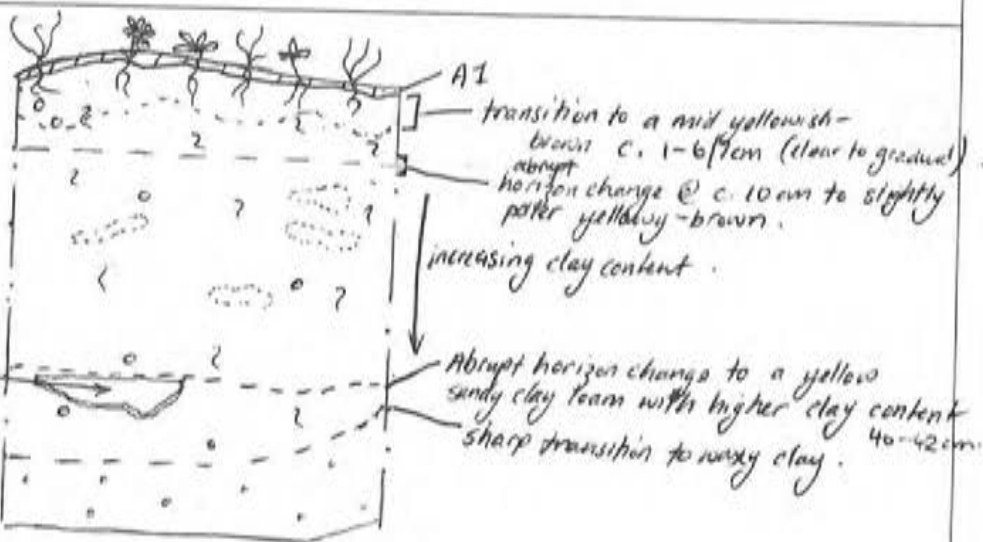 A1
transition to a mid yellowish-
brown c. 1-6/7cm (clear to gradual).
abrupt
horizon change @ c. 10cm to slightly
paler yellowy-brown.
increasing clay content.
Abrupt horizon change to a yellow
sandy clay loam with higher clay content
40-42cm.
sharp transition to waxy clay.